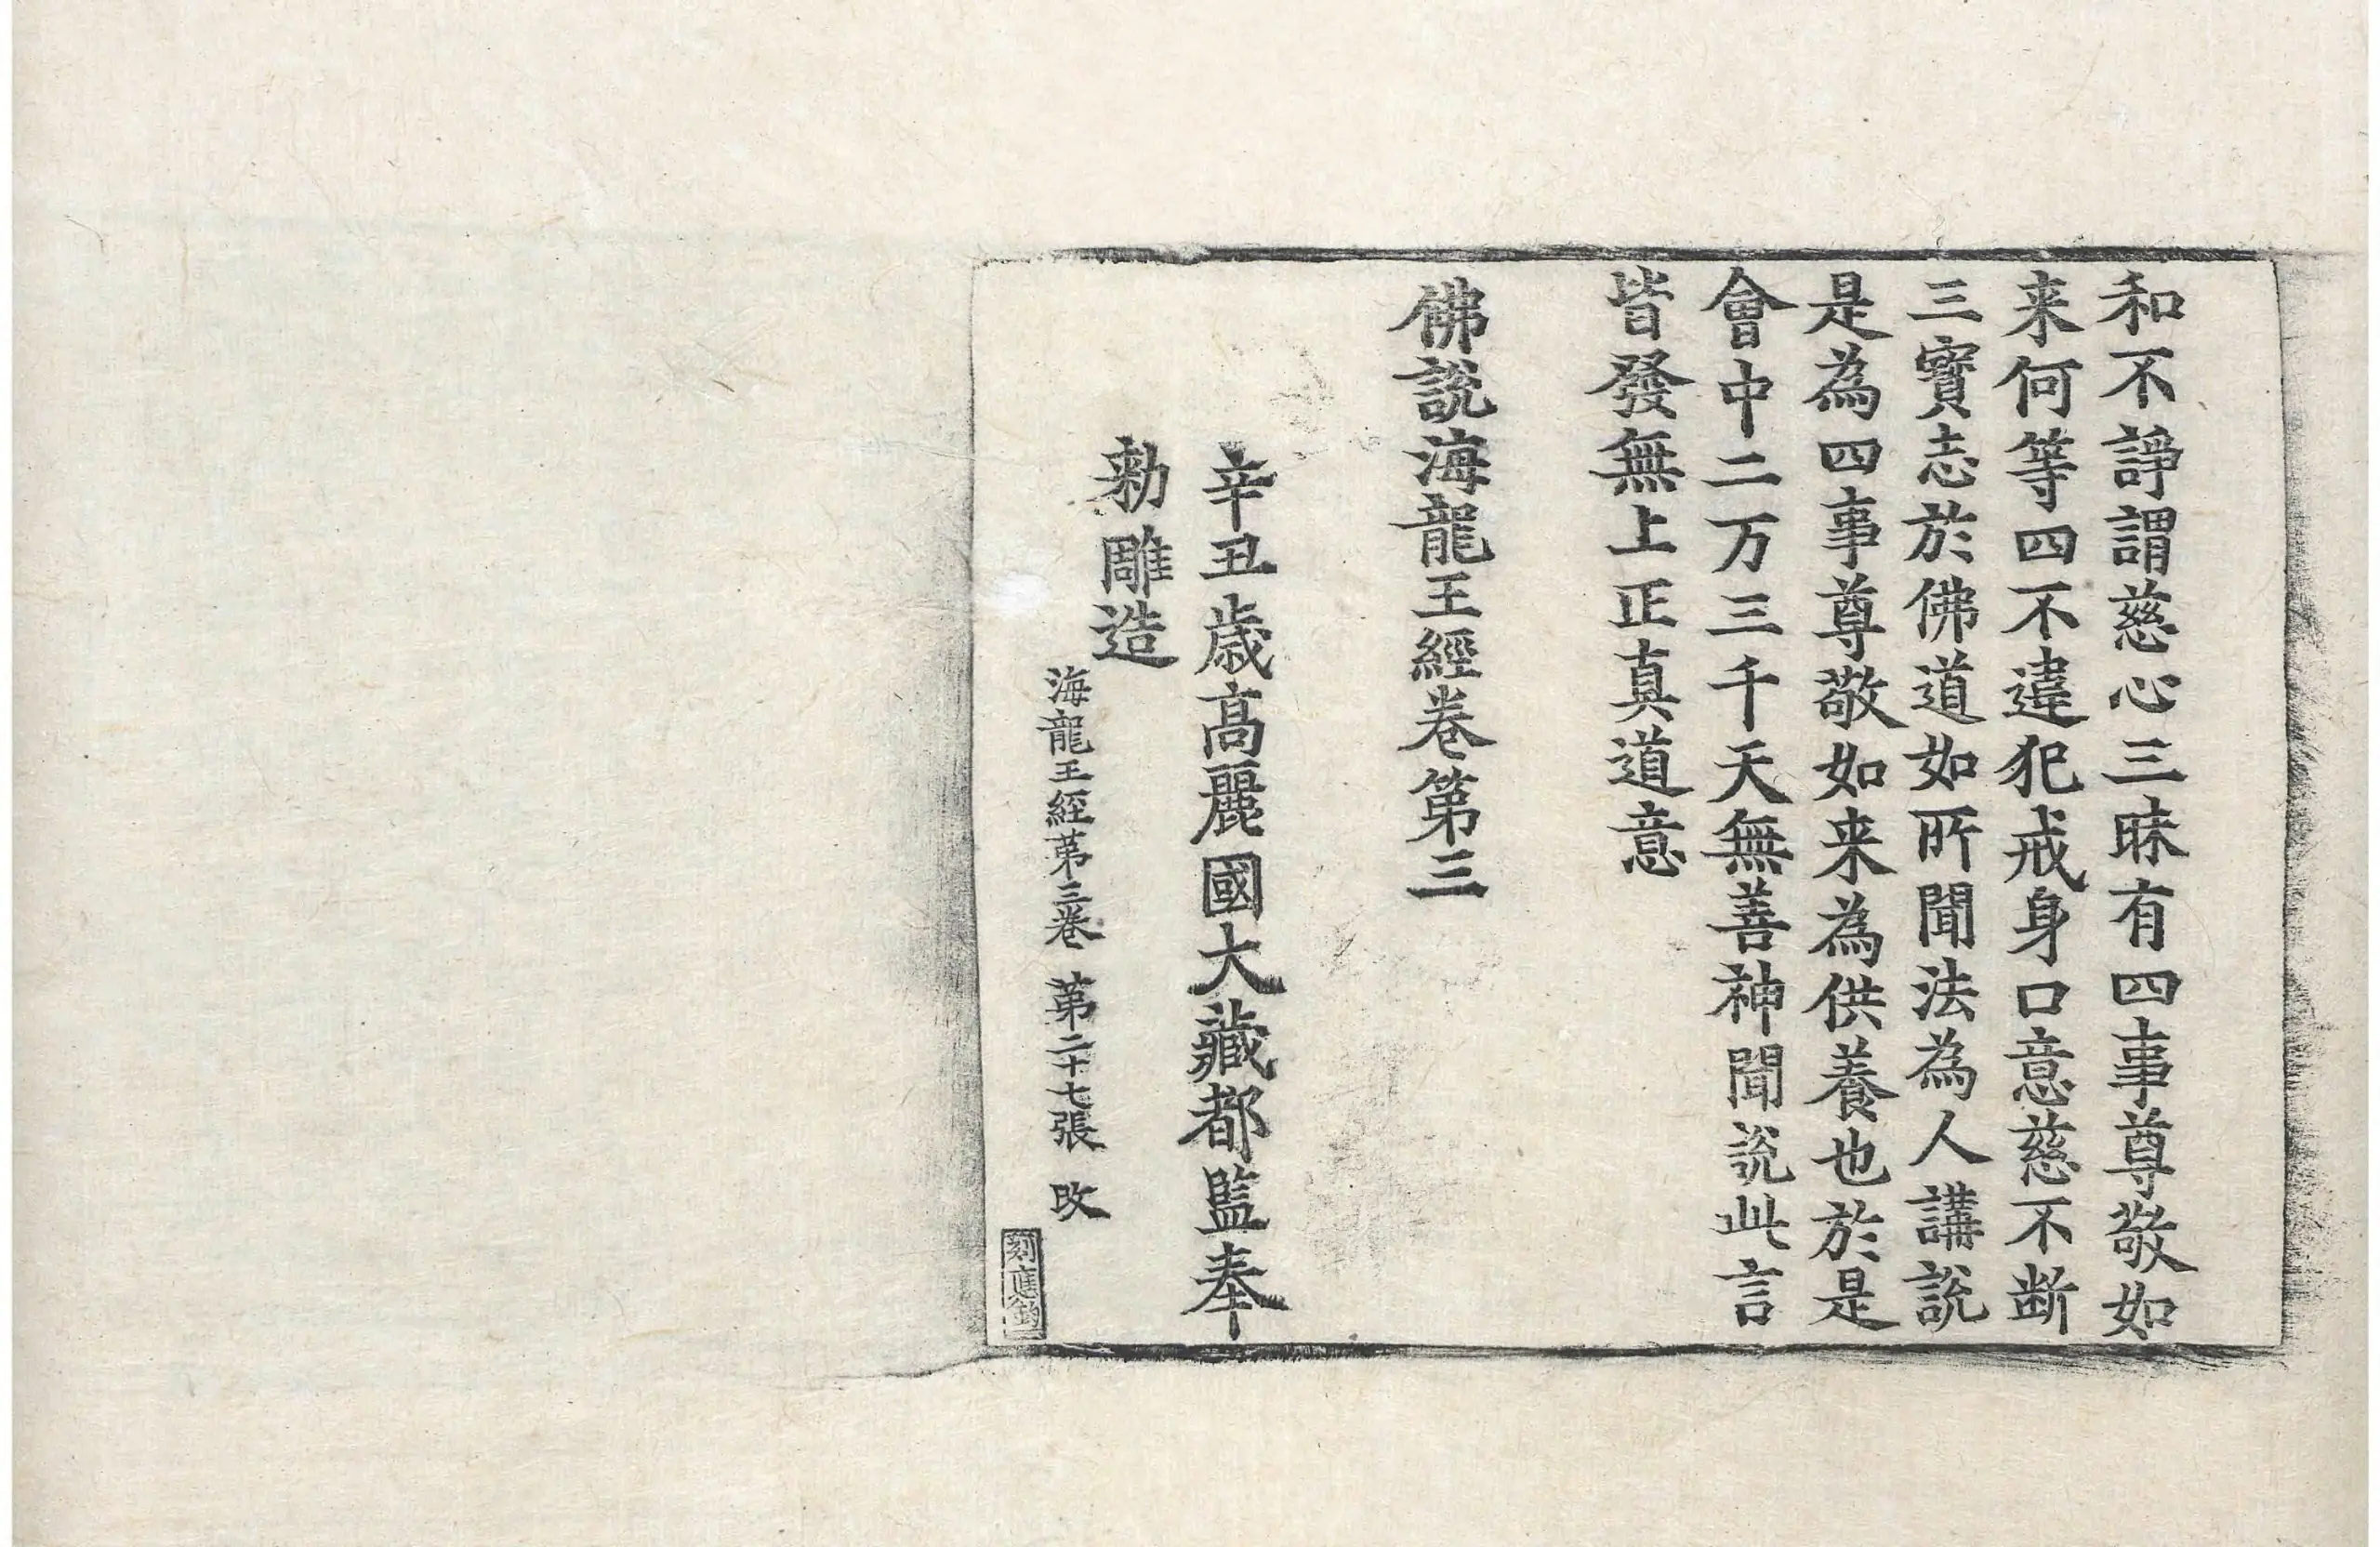 和不諍謂慈心三昧有四事尊敬如
来何等四不違犯戒身口意慈不断
三寶志於佛道如所聞法為人講說
是為四事尊敬如来為供養也於是
會中二万三千天無善神聞說此言
皆發無上正真道意
佛說海龍王經卷第三
辛丑歳高麗國大藏都監奉
勅雕造
海龍王經第三卷 第二十七張 改